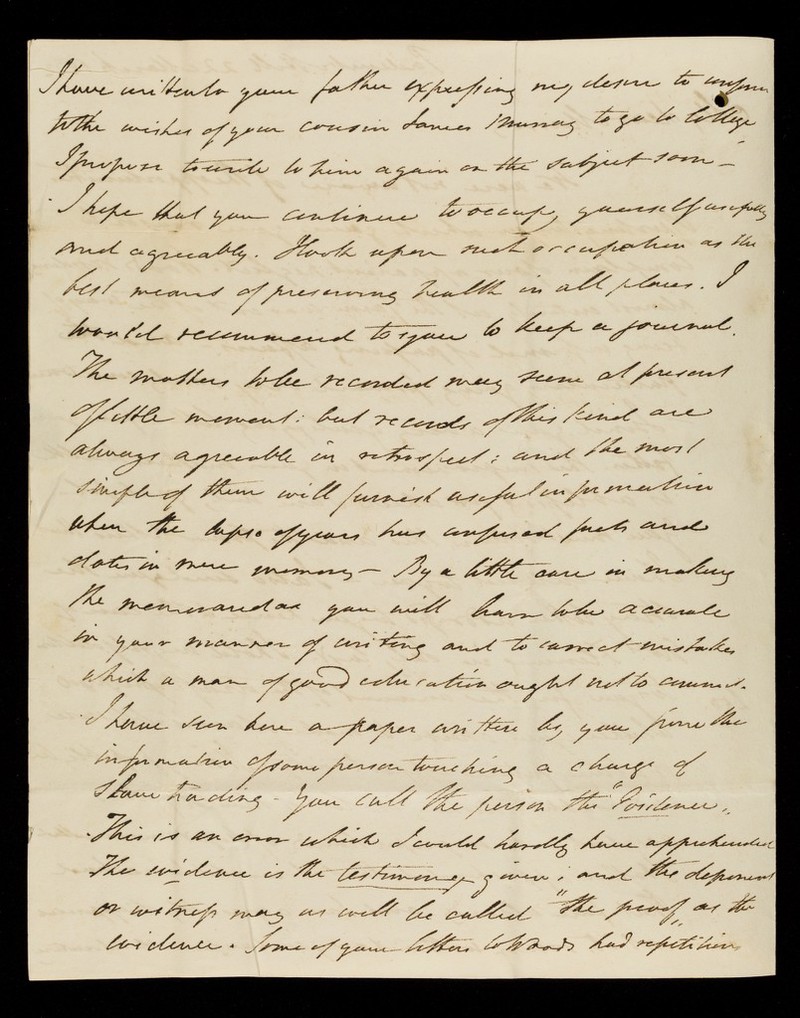 I have written to your father expressing my desire to conform
to the wishes of your cousin James Murray to go to College
I propose to write to him again on the subject soon –
I hope that you continue to occupy yourself usefully
and agreeably. I look upon such occupation as the
best means of preserving health in all places. I
would recommend to you to keep a journal.
The matters to be recorded may seem at present
of little moment: but records of this kind are
always agreeable in retrospect: and the most
simple of them will furnish useful information
when the lapse of years has confused facts and
dates in mere memory – By a little care in making
the memoranda you will learn to be accurate
in your manner of writing and to correct mistakes
which a man of good education ought not to commit.
I have seen here a paper written by you from the
information of some person touching a charge of
Slave trading – You call the person the "Evidence"
This is an error which I could hardly have apprehended
The evidence is the testimony given; and the deponent
or witness may as well be called "the proof" as the
evidence. Some of your letters to had repetitions